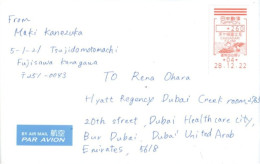 From
Maki Kanozuka
5-1-21 Tsujidomotomachi
Fujisawa kanagawa
日本郵便
28.12.22
TO Rena Ohara
Hyatt Regency Dubai Creek room
20th street, Dubai Healthcare city,
Bur Dubai, Dubai United Arab
Emirates,
BY AIR MAIL 航空
PAR AVION